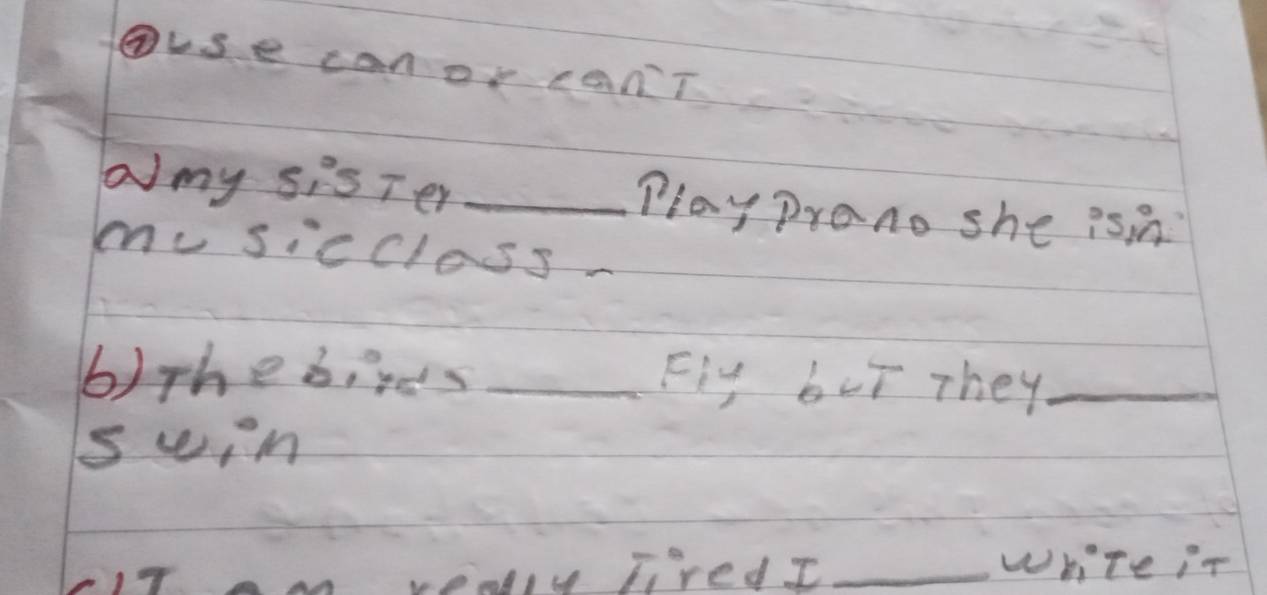 ⑦ use can or can't
a) my sister ______ Play Prano she is in
music class.
b) The birds ______ Fly but They ______
swin
c) I am really Tired I ______ write it